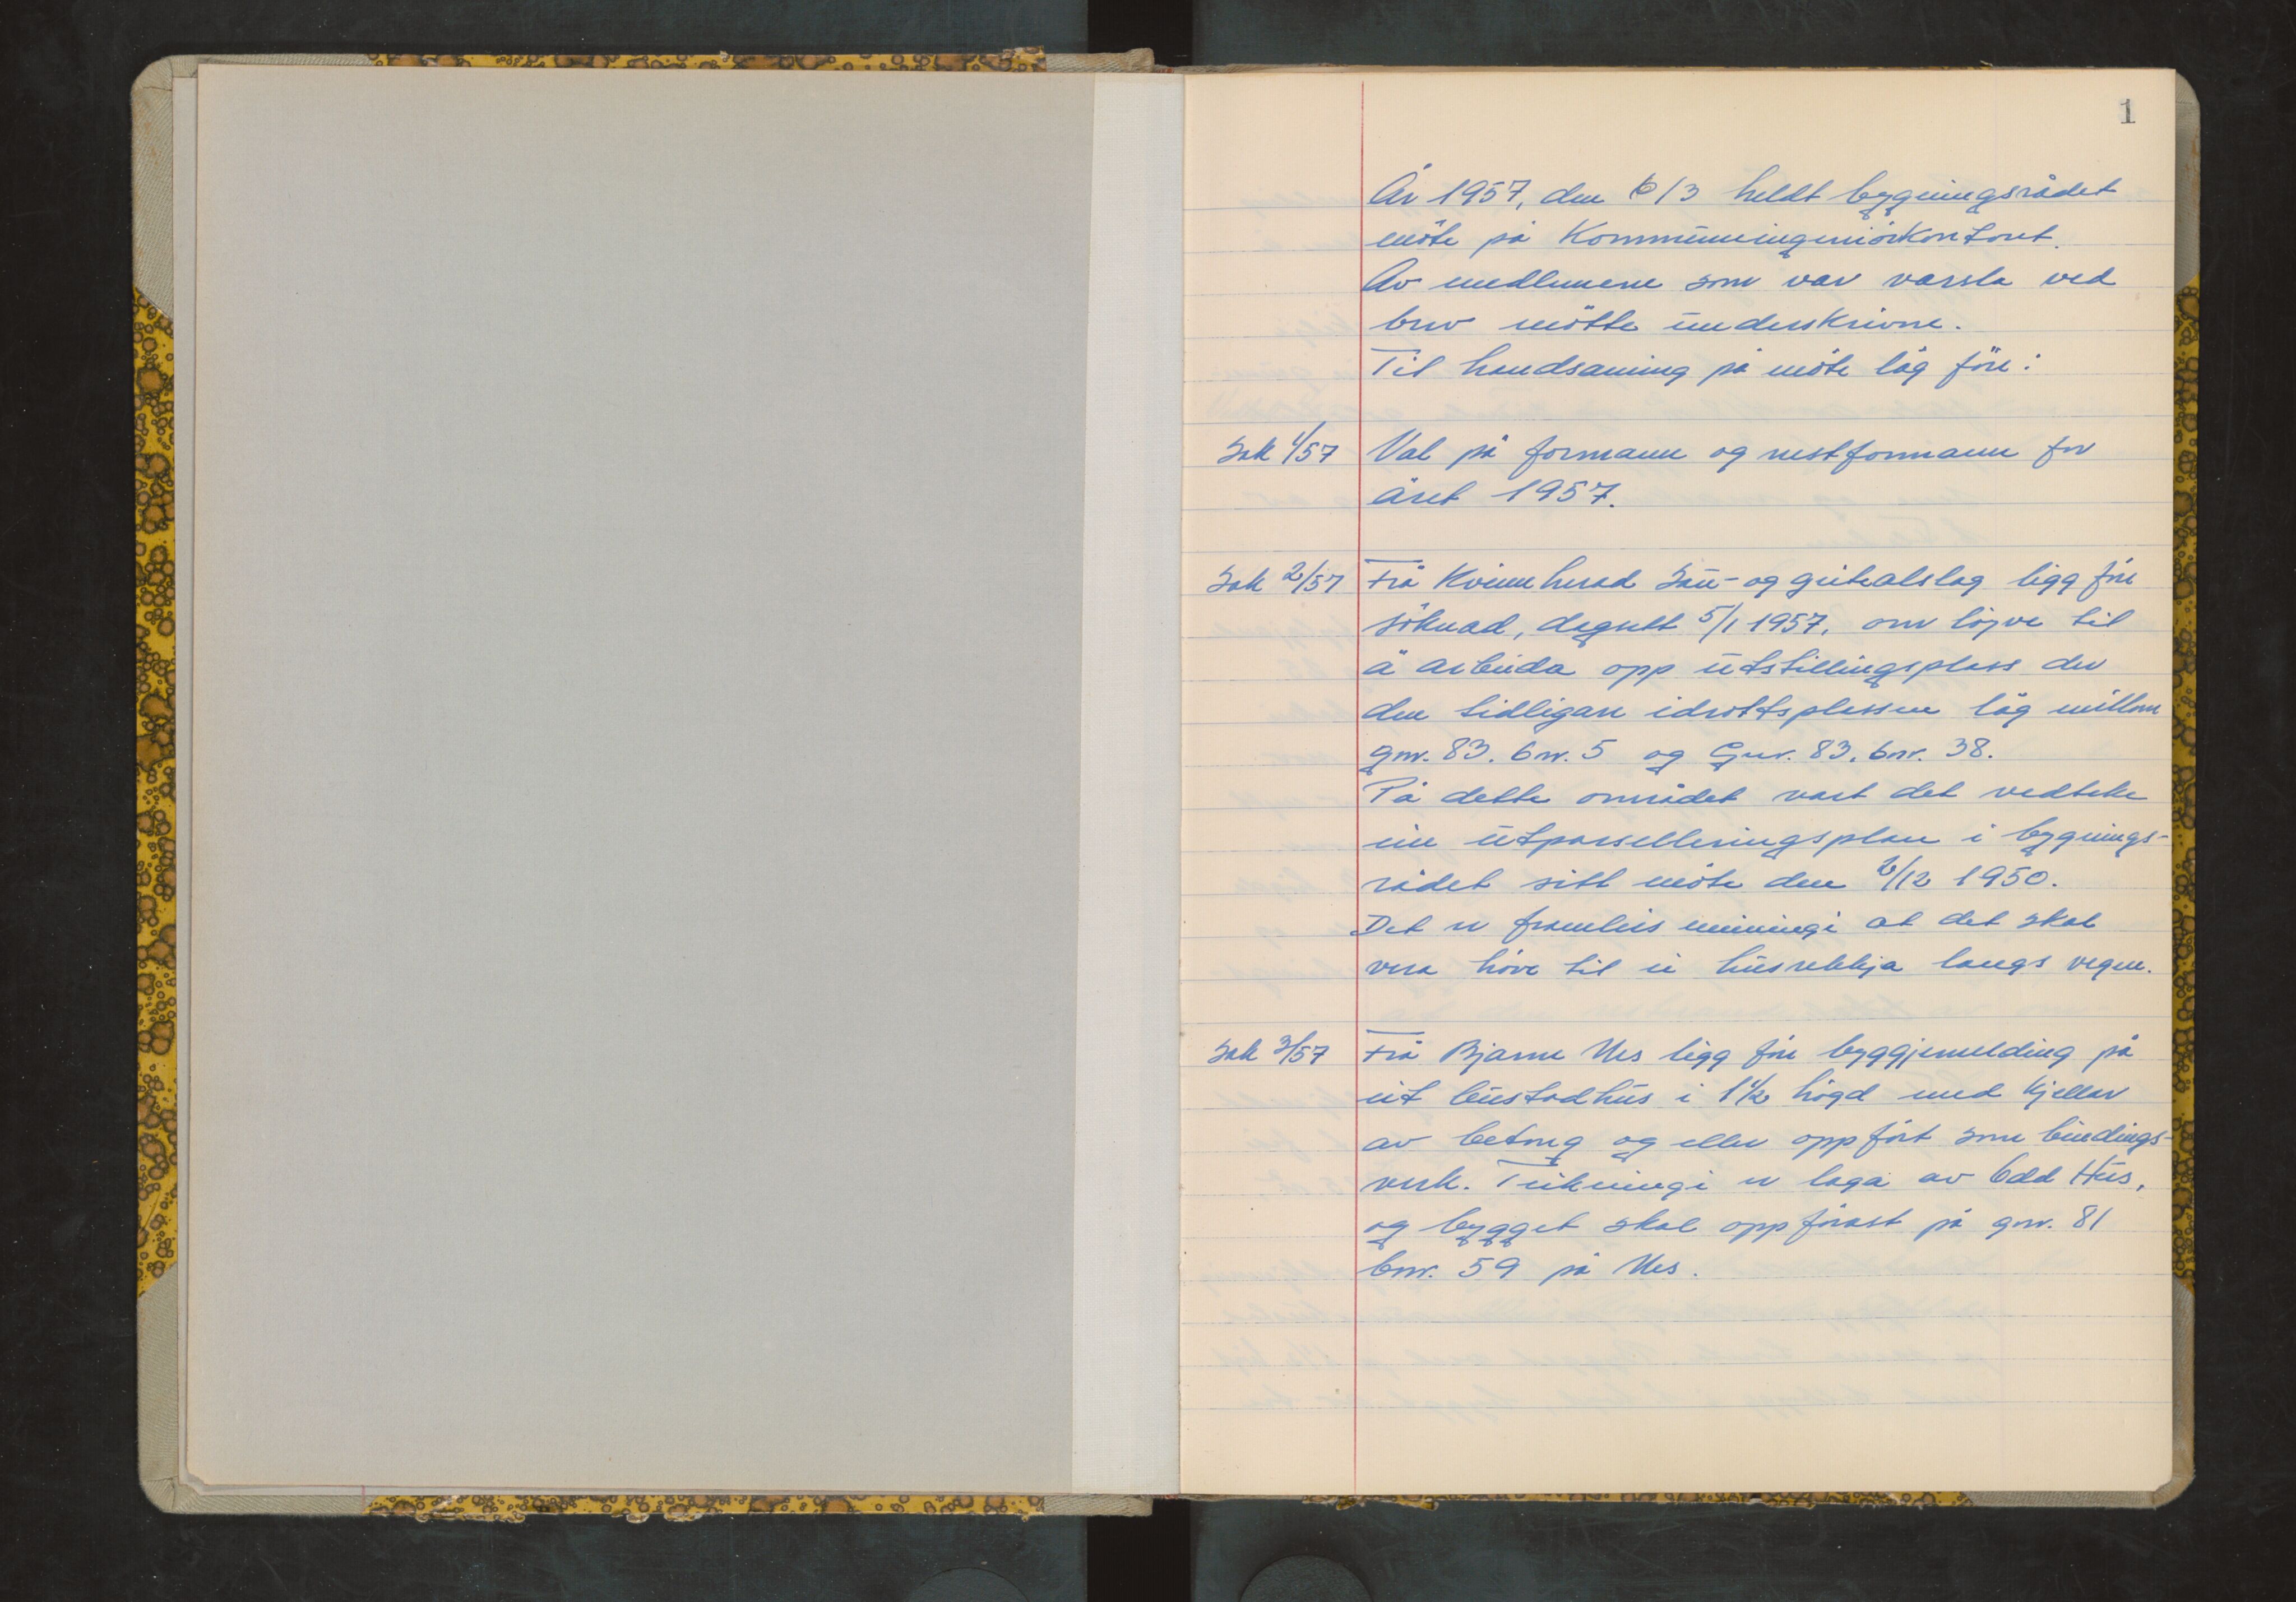 1
År 1957, den 6/3 heldt bygningsrådet
möte på Kommuneingeniörkontoret.
Av medlemene som var varsla ved
brev mötte underskrivne.
Til handsaming på möte låg före:
Sak 1/57 Val på formann og nestformann for
året 1957.
Sak 2/57 Frå Kvinnherad Sau- og geitealslag ligg före
söknad, dagsett 5/1 1957, om löyve til
å arbeida opp utstillingsplass der
den tidligare idrottsplassen låg millom
gnr. 83. bnr. 5 og Gnr. 83. bnr. 38.
På dette området vart det vedteke
ein utparselleringsplan i bygnings-
rådet sitt möte den 2/12 1950.
Det er framleis meiningi at det skal
vera höve til ei husrekkja langs vegen.
Sak 3/57 Frå Bjarne Nes ligg före byggjemelding på
eit bustadhus i 1 1/2 högd med kjellar
av betong og eller oppfört som bindings-
verk. Teikningi er laga av Odd Hus,
og bygget skal oppförast på gnr. 81
bnr. 59 på Nes.